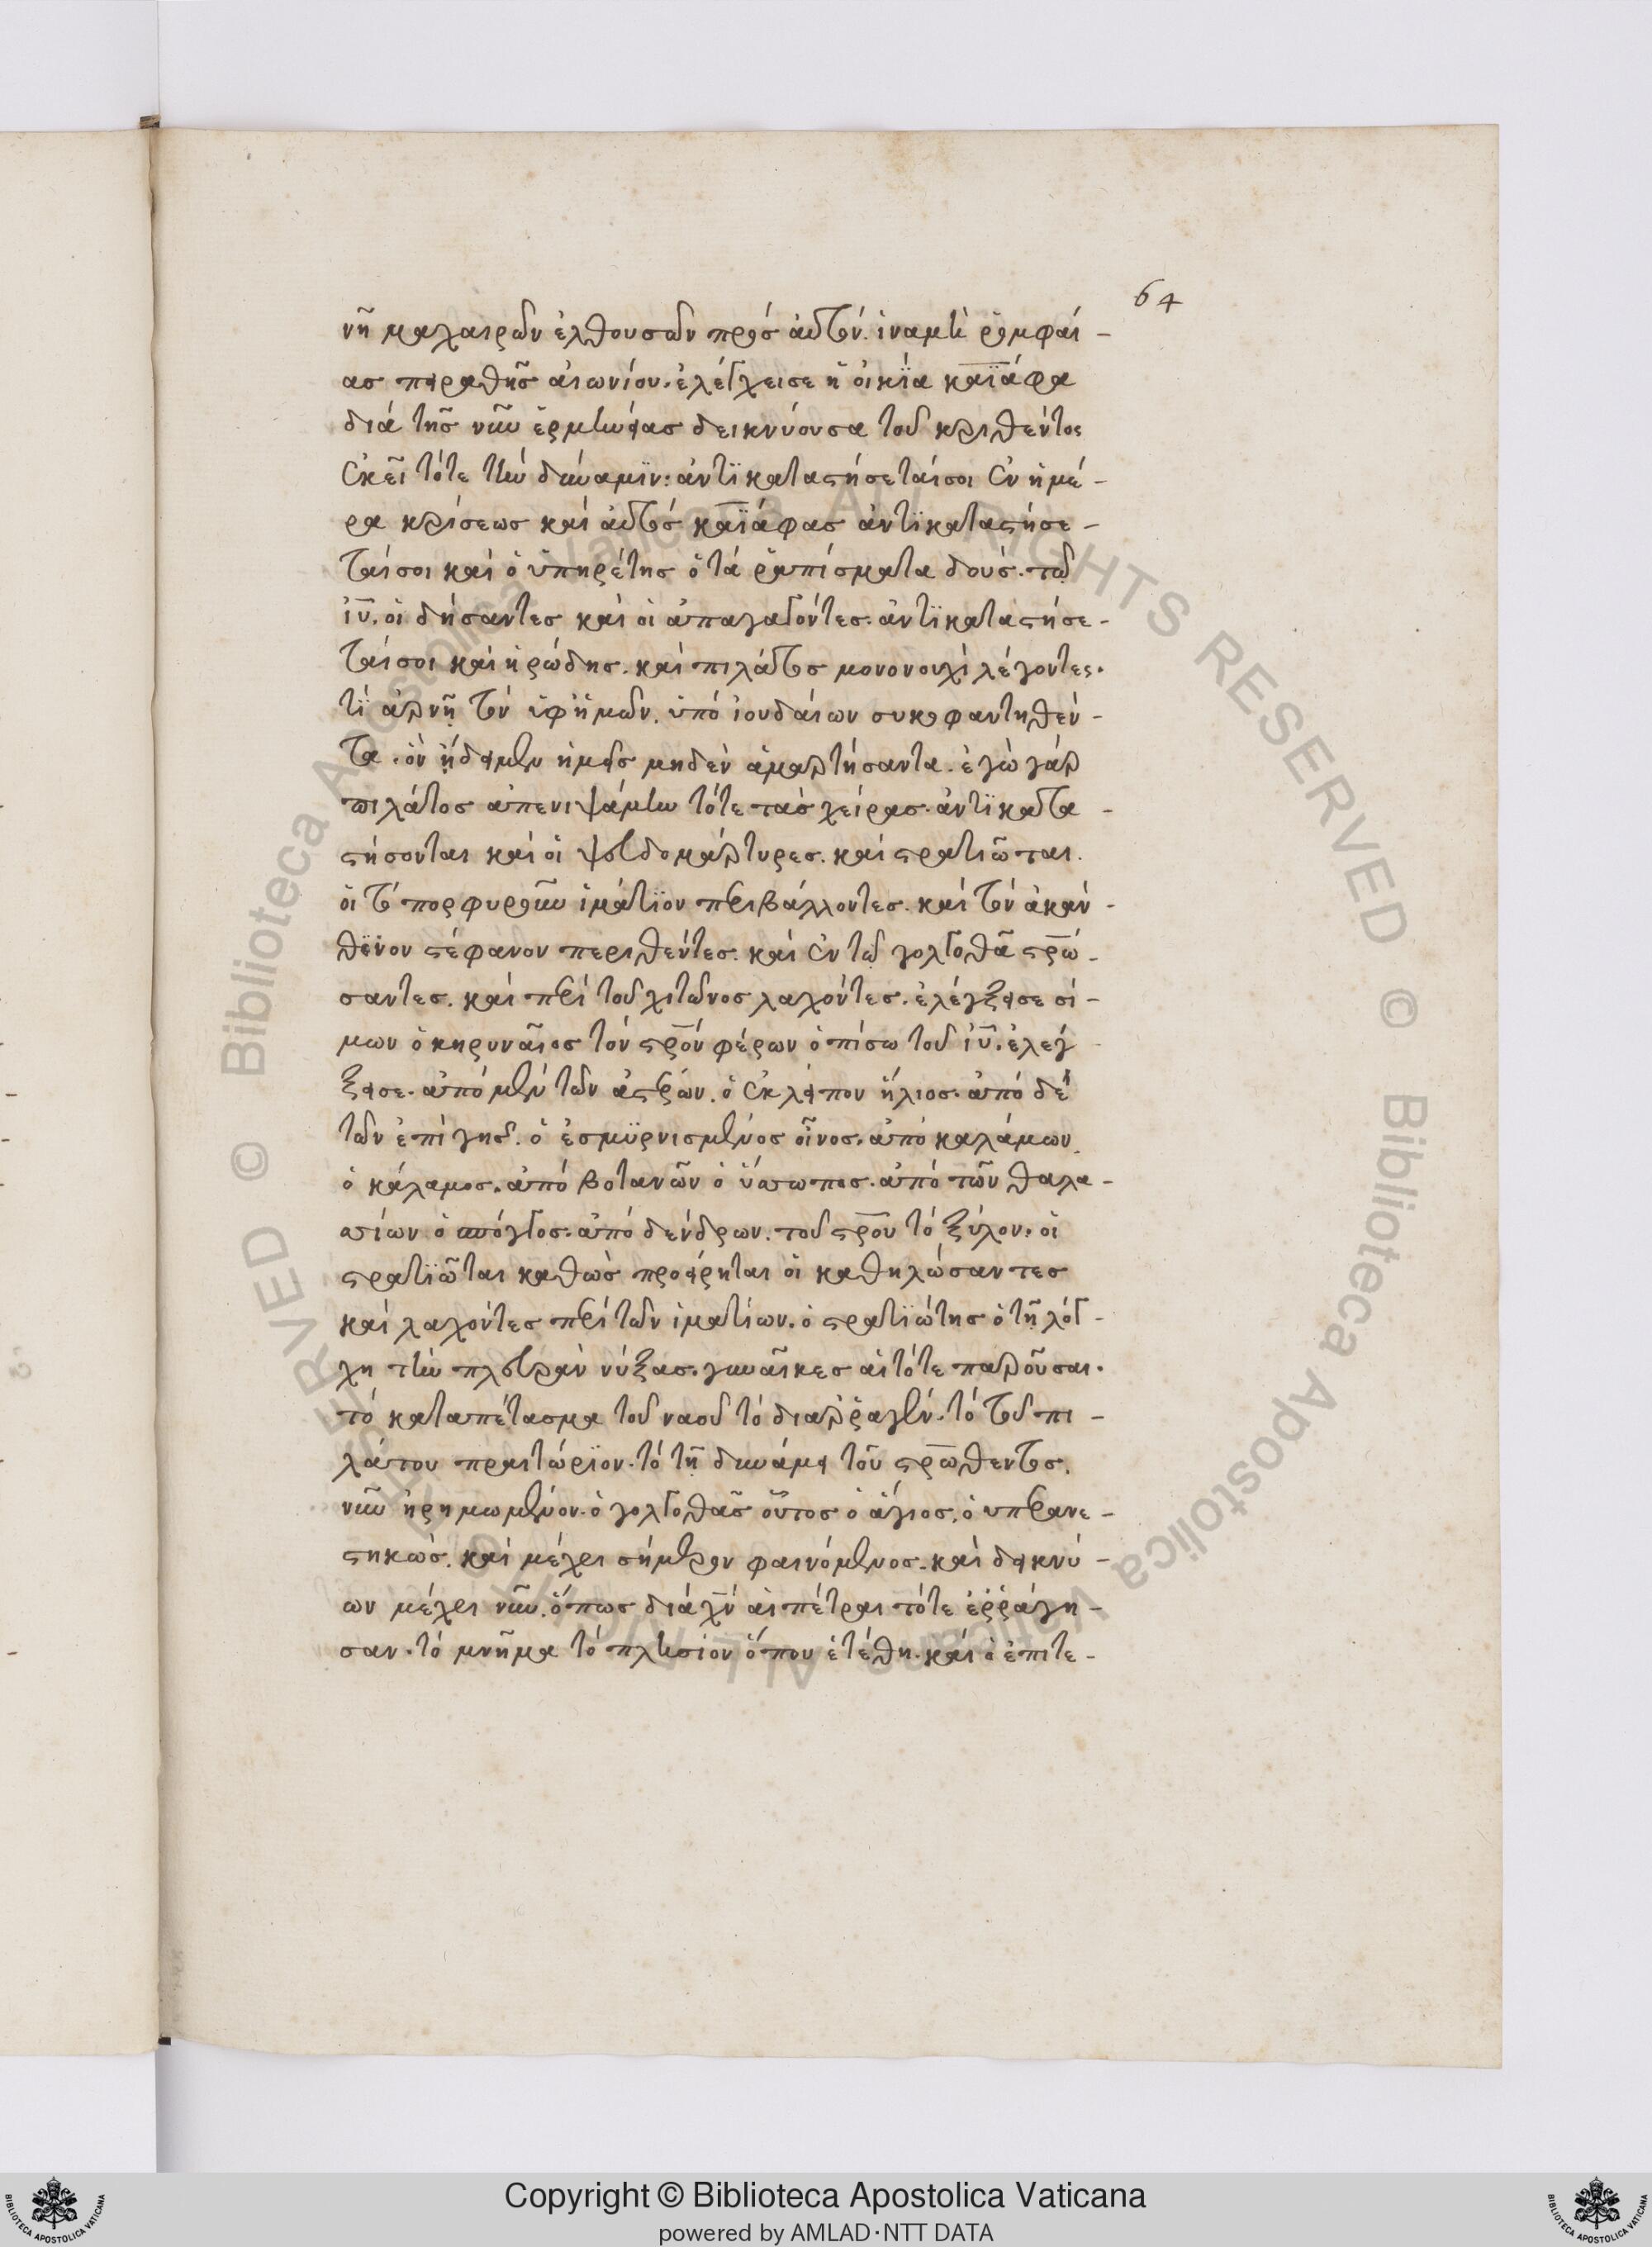 64
νῆ μαχαιρῶν ἐλθουσῶν πρός αὐτόν. ἱναμὴ ῥομφαί-
ας πειραθῇς αἰωνίου. ἐλέγχεισε ἡ οἰκΐα καϊάφα
διά τῆς νῦν ἐρημώσεως δεικνύουσα τοῦ κριθέντος
ἐκεῖ τότε τὴν δύναμϊν: ἀντϊκαταστήσεταίσοι ἐν ἡμέ-
ρα κρίσεως καί αὐτός καϊάφας ἀντϊκαταστήσε-
ταίσοι καί ὁ ὑπηρέτης ὁ τά ῥαπίσματα δούς. τῷ
ἰῦ. οἱ δήσαντες καί οἱ ἀπαγαγόντες. ἀντϊκαταστήσε-
ταίσοι καί ἡρώδης. καί πιλάτος μονονουχί λέγοντες.
τί ἀρνῇ τόν ὑφἡμῶν. ὑπό ἰουδαίων συκοφαντηθέν-
τα. ὅν ᾔδειμεν ἡμεῖς μηδέν ἁμαρτήσαντα. ἐγώ γάρ
πιλάτος ἀπενιψάμην τότε τάς χείρας. ἀντϊκατα-
στήσονται καί οἱ ψευδομάρτυρες. καί στρατιῶται.
οἱ τό πορφυροῦν ἱμάτϊον περιβάλλοντες. καί τόν ἀκάν-
θϊνον στέφανον περιθέντες. καί ἐν τῷ γολγοθᾶ σρώ-
σαντες. καί περί τοῦ χιτῶνος λαχόντες. ἐλέγξεισε σί-
μων ὁ κηρυναῖος τόν σρόν φέρων ὀπίσω τοῦ ἰῦ. ἐλεγ-
ξεισε. ἀπό μέν τῶν ἀστέρων. ὁ ἐκλείπων ἥλιος. ἀπό δέ
τῶν ἐπί γῆς. ὁ ἐσμϋρνισμένος οἶνος. ἀπό καλάμων
ὁ κάλαμος. ἀπό βοτανῶν ὁ ὕσωπος. ἀπό τῶν θαλα-
σσίων ὁ σπόγγος. ἀπό δένδρων. τοῦ σροῦ τό ξύλον. οἱ
στρατϊῶται καθώς προείρηται οἱ καθηλώσαντες
καί λαχόντες περί τῶν ἱματίων. ὁ στρατϊώτης ὁ τῇ λόγ-
χη τήν πλευράν νύξας. γυναῖκες αἱ τότε παροῦσαι.
τό καταπέτασμα τοῦ ναοῦ τό διαρῥαγέν. τό τοῦ πι-
λάτου πραιτώριον. τό τῇ δυνάμει τοῦ σρωθέντος.
νῦν ἠρημωμένον. ὁ γολγοθᾶς οὗτος ὁ ἅγιος. ὁ ὑπερανε-
στηκώς. καί μέχρι σήμερον φαινόμενος. καί δεικνύ-
ων μέχρι νῦν. ὅπως διά χν̄ αἱ πέτραι τότε ἐῤῥάγη-
σαν. τό μνῆμα τό πλησίον ὅπου ἐτέθη. καί ὁ ἐπιτε-
Copyright © Biblioteca Apostolica Vaticana
powered by AMLAD·NTT DATA